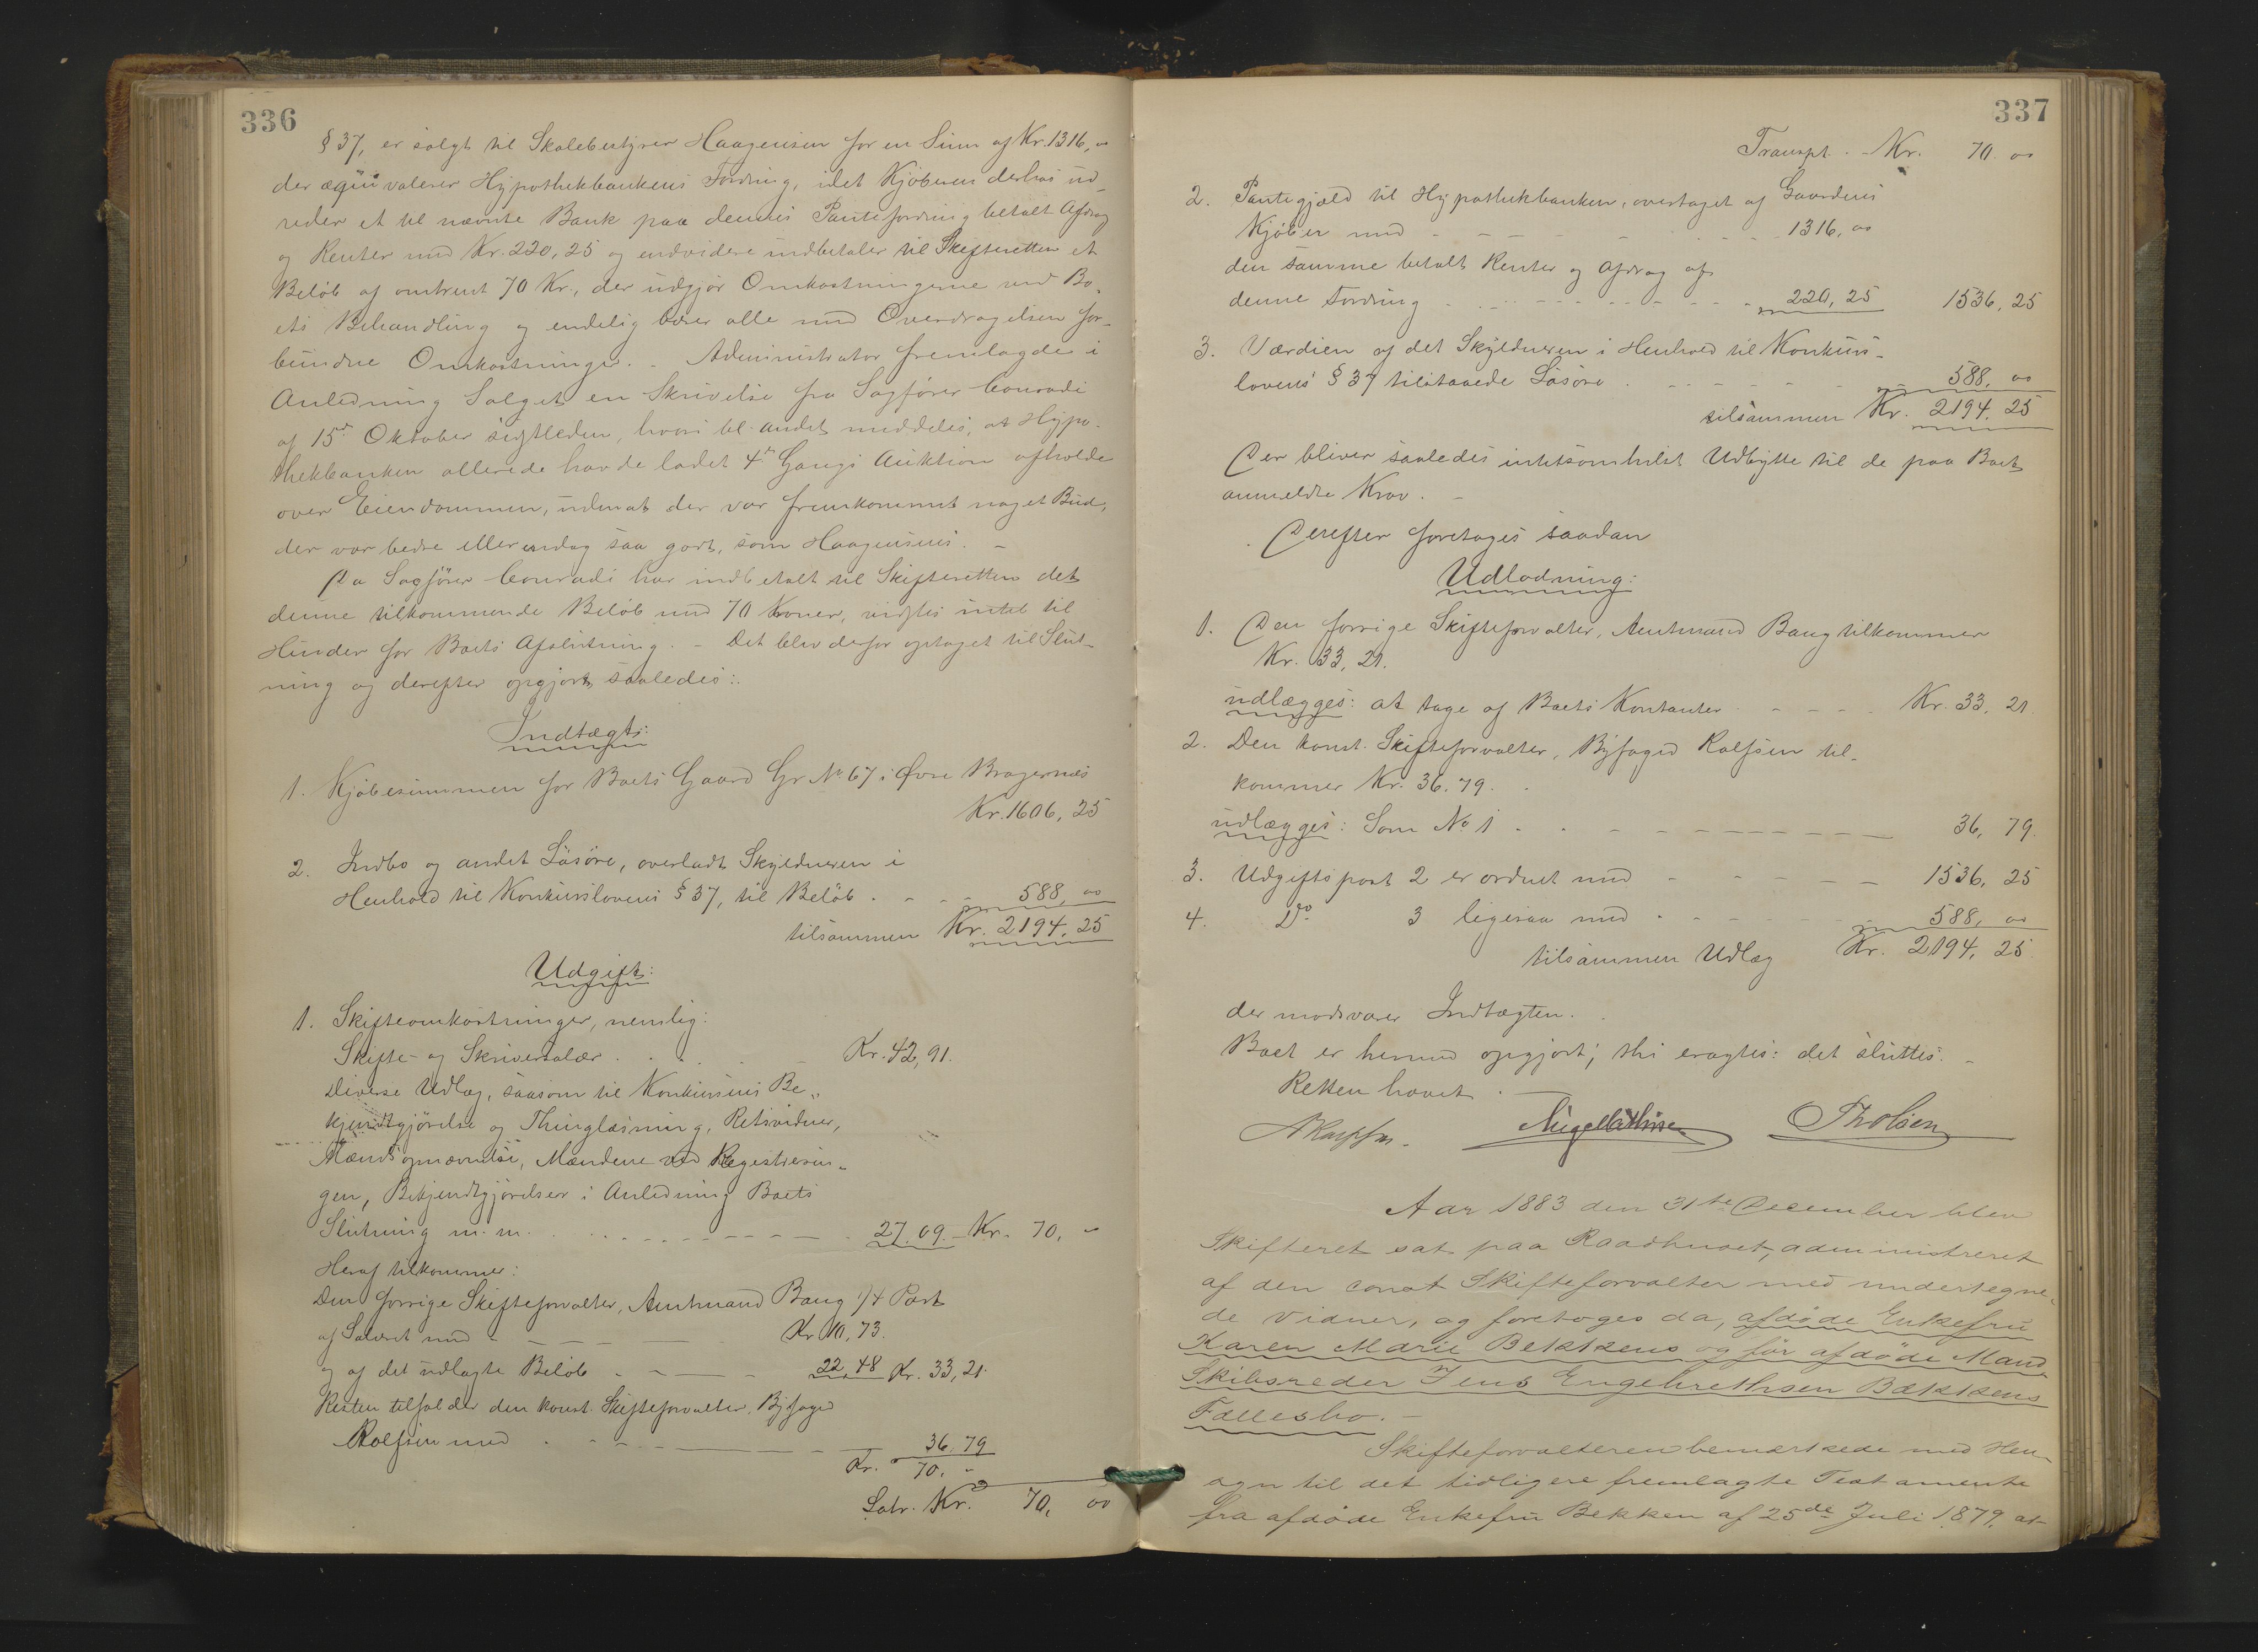 336
§ 37, er solgt til Skolebestyrer Haagensen for en Sum af Kr. 1316, 00
der æquivalerer Hypothekbankens Fordring, idet Kjøberen derhos ud-
reder et til nævnte Bank paa dennes Pantefordring betalt Afdrag
og Renter med Kr. 220,25 og endvidere indbetaler til Skifteretten et
Beløb af omtrent 70 Kr., der udgjør Omkostningerne ved Bo-
ets Behandling og endelig bærer alle med Overdragelsen for-
bundne Omkostninger. - Administrator fremlagde i
Anledning Salget en Skrivelse fra Sagfører Conradi
af 15d Oktober sidstleden, hvori bl. andet meddeles, at Hypo-
thekbanken allerede havde ladet 4de Gangs Auktion afholde
over Eiendommen, uden at der var fremkommet noget Bud,
der var bedre eller endog saa godt, som Haagensens. -
Da Sagfører Conradi har indbetalt til Skifteretten det
denne tilkommende Beløb med 70 Kroner, vidstes intet til
Hinder for Boets Afslutning. - Det blev derfor optaget til Slut-
ning og derefter opgjort saaledes:
Indtægt:
1. Kjøbesummen for Boets Gaard Gr. No 67 i Øvre Bragernæs
Kr. 1606, 25
2. Indbo og andet Løsøre, overladt Skyldneren i
Henhold til Konkurslovens § 37, til Beløb - - - 588, 00
tilsammen Kr. 2194, 25
Udgift:
1. Skifteomkostninger, nemlig:
Skifte- og Skriversalær . . . Kr. 42,91.
Diverse Udlæg, saasom til Konkursens Be-
kjendtgjørelse og Thinglæsning, Retsvidner,
Mænds opnævnelse, Mændene ved Registrerin-
gen, Bekjendtgjørelser i Anledning Boets
Slutning m. m. - - - 27.09. - Kr. 70, -
Heraf tilkommer:
Den forrige Skifteforvalter, Amtmand Bang 1/4 Part
af Salæret med - - - Kr. 10,73.
og af det udlagte Beløb - - - 22,48 Kr. 33,21.
Resten tilfalder den konst. Skifteforvalter, Byfoged
Rolfsen med - - - 36.79
Kr. 70. -
Latr. Kr. 70, 00
337
Transpt. - Kr. 70. 00
2. Pantegjæld til Hypothekbanken, overtaget af Gaardens
Kjøber med - - - 1316, 00
den samme betalt Renter og Afdrag af
denne Fordring - - - 220, 25 1536, 25
3. Værdien af det Skyldneren i Henhold til Konkurs-
lovens § 37 tilstaaede Løsøre - - - 588, 00
tilsammen Kr. 2194. 25
Der bliver saaledes intetsomhelst Udbytte til de paa Boet
anmeldte Krav. -
Derefter foretoges saadan
Udlodning:
1. Den forrige Skifteforvalter, Amtmand Bang tilkommer
Kr. 33, 21.
udlægges: at tage af Boets Kontanter - - - Kr. 33, 21.
2. Den konst. Skifteforvalter, Byfoged Rolfsen til-
kommer Kr. 36. 79.
udlægges: Som No 1 - - - 36, 79.
3. Udgiftspost 2 er ordnet med - - - 1536, 25
4. Do 3 ligesaa med - - - 588, 00
tilsammen Udlæg Kr. 2194, 25
der modsvarer Indtægten.
Boet er hermed opgjort; thi eragtes: det sluttes. -
Retten hævet. -
Aar 1883 den 31te December blev
Skifteret sat paa Raadhuset, administreret
af den const Skifteforvalter med undertegne-
de Vidner, og foretoges da, afdøde Enkefru
Karen Marie Bekkens og før afdøde Mand,
Skibsreder Jens Engebrethsen Bækkens
Fællesbo. -
Skifteforvalteren bemærkede med Hen-
syn til det tidligere fremlagte Testamente
fra afdøde Enkefru Bekken af 25de Juli 1879, at